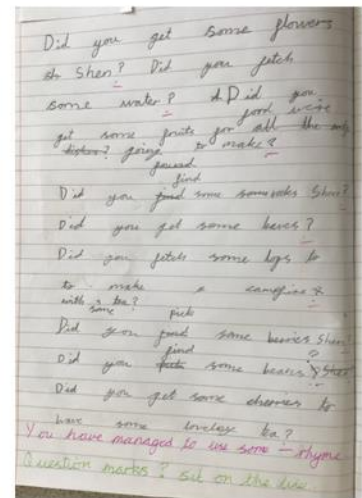 Did you get some flowers
Shen? Did you fetch
some water? Did you
food we're
get some fruits for all the
going to make?
found
find
Did you find some rocks Shen?
Did you get some leaves?
Did you fetch some logs to
to make a campfire
with a tea?
some pick
Did you find some berries Shen?
find
Did you some Shen
Did you get some cherries to
have some lovely tea?
You have managed to use some - rhyme
Question marks ? sit on the line.